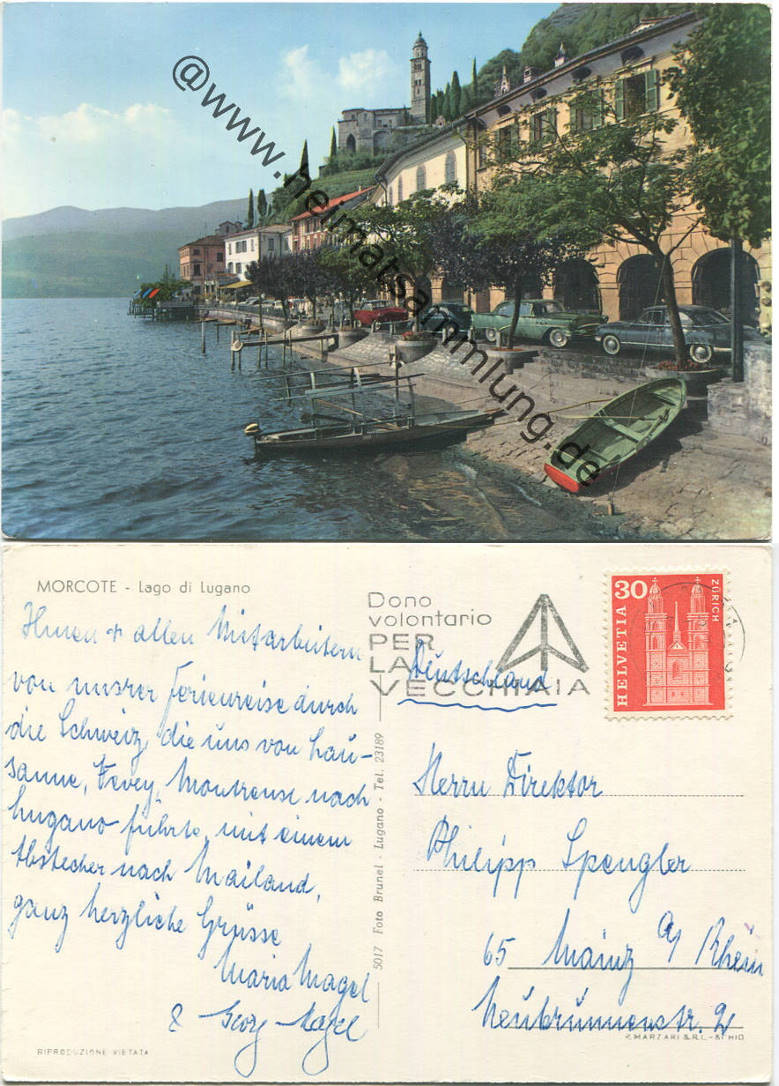 @www.heimatsammlung.de
MORCOTE - Lago di Lugano
Ihnen + allen Mitarbeitern
von unsrer Ferienreise durch
die Schweiz, die uns von Lau-
sanne, Vevey, Montreux nach
Lugano führte, mit einem
Abstecher nach Mailand,
ganz herzliche Grüsse
Maria Magel
& Georg Magel
RIPRODUZIONE VIETATA
5017 Foto Brunel - Lugano - Tel. 23189
Dono
volontario
PER
LA
VECCHIAIA
30
HELVETIA
ZÜRICH
Deutschland
Herrn Direktor
Philipp Spengler
65 Mainz a/ Rhein
Neubrunnenstr. 2